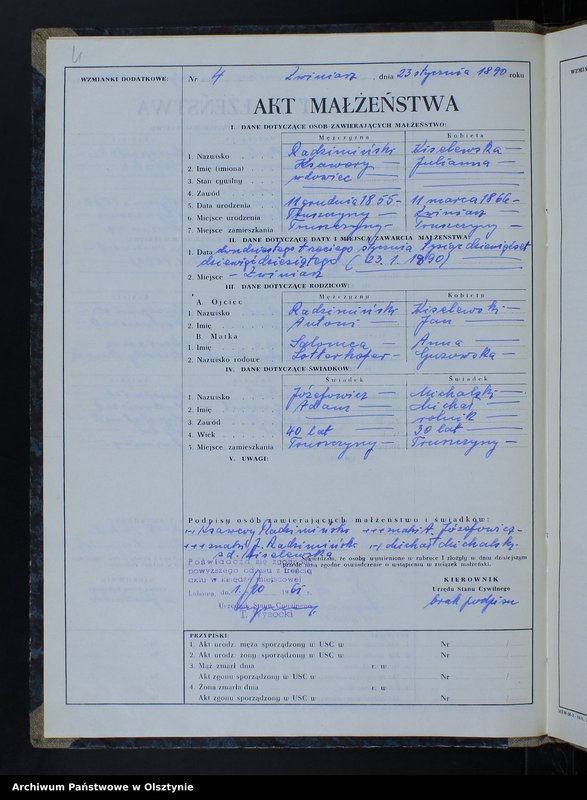 WZMIANKI DODATKOWE:
Nr 4 Zwiniarz, dnia 23 stycznia 1890 roku
AKT MAŁŻEŃSTWA
I. DANE DOTYCZĄCE OSÓB ZAWIERAJĄCYCH MAŁŻEŃSTWO:
Mężczyzna Kobieta
1. Nazwisko Radzimiński Kiselewska
2. Imię (imiona) Ksawery Julianna
3. Stan cywilny wdowiec
4. Zawód
5. Data urodzenia 11 grudnia 1855 11 marca 1866
6. Miejsce urodzenia Tłuszczyny Zwiniarz
7. Miejsce zamieszkania Truszczyny Truszczyny
II. DANE DOTYCZĄCE DATY I MIEJSCA ZAWARCIA MAŁŻEŃSTWA
1. Data dwudziestego trzeciego stycznia tysiąc
dziewięćdziesiątego (23.1.1890)
2. Miejsce - Zwiniarz
III. DANE DOTYCZĄCE RODZICÓW:
Mężczyzny Kobiety
A. Ojciec
1. Nazwisko Radzimiński Kiselewski
2. Imię Antoni Jan
B. Matka
1. Imię Salomea Anna
2. Nazwisko rodowe Lotterhofer Guzowska
IV. DANE DOTYCZĄCE ŚWIADKÓW:
Świadek Świadek
1. Nazwisko Józefowicz Michalski
2. Imię Adam Michał
3. Zawód rolnik
4. Wiek 40 lat 30 lat
5. Miejsce zamieszkania Truszczyny Truszczyny
V. UWAGI:
Podpisy osób zawierających małżeństwo i świadków:
-/ Ksawery Radzimiński +++ znaki A. Józefowicz
+++ znaki J. Radzimińska -/ Michał Michalski
zd. Kiselewska
Poświadcza się zgodność
powyższego odpisu z treścią
aktu w księdze miejscowej
Stwierdzam, że osoby wymienione w rubrece I złożyły w dniu dzisiejszym
przede mną zgodne oświadczenie o wstąpieniu w związek małżeński.
KIEROWNIK
Urzędu Stanu Cywilnego
brak podpisu
Lubawa, dn. 1/10 1961
Urzędnik Stanu Cywilnego
T. Wysocki
PRZYPISKI:
1. Akt urodz. męża sporządzony w USC w Nr
2. Akt urodz. żony sporządzony w USC w Nr
3. Mąż zmarł dnia r. w
Akt zgonu sporządzony w USC w Nr
4. Żona zmarła dnia r. w
Akt zgonu sporządzony w USC w Nr
Archiwum Państwowe w Olsztynie